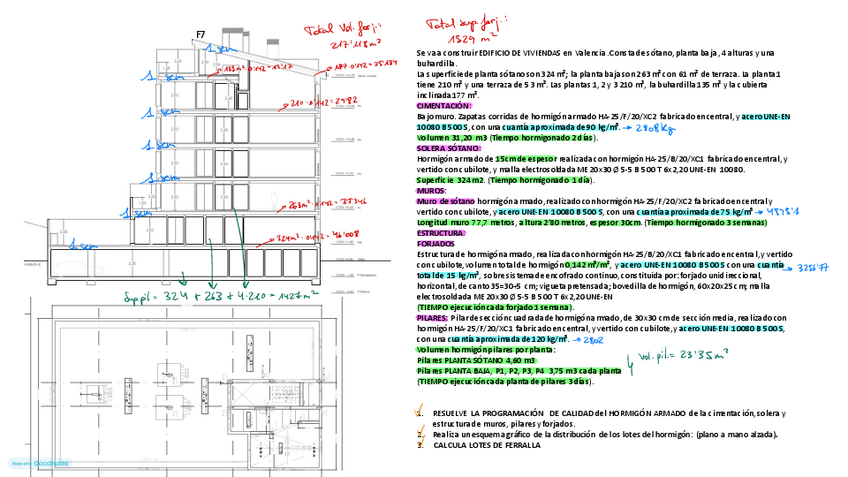 F7
Total Vol. forj.:
217'118 m³
1 sem
1 sem
133 m² · 0'142 = 
177 · 0'142 = 25'134
1 sem
210 · 0'142 = 29'82
1 sem
1 sem
1 sem
263 m² · 0'142 = 37'346
1 sem
324 m² · 0'142 = 46'008
Sup pil = 324 + 263 + 4·210 = 1427 m²
Made with Goodnotes
Total sup. forj.:
1829 m²
Se va a construir EDIFICIO DE VIVIENDAS en Valencia. Consta de sótano, planta baja, 4 alturas y una
buhardilla.
La superficie de planta sótano son 324 m²; la planta baja son 263 m² con 61 m² de terraza. La planta 1
tiene 210 m² y una terraza de 53 m². Las plantas 1, 2 y 3 210 m², la buhardilla 135 m² y la cubierta
inclinada 177 m².
CIMENTACIÓN:
Bajo muro. Zapatas corridas de hormigón armado HA-25/F/20/XC2 fabricado en central, y acero UNE-EN
10080 B 500 S, con una cuantía aproximada de 90 kg/m³. → 2808 kg
Volumen 31,20 m3 (Tiempo hormigonado 2 días).
SOLERA SÓTANO:
Hormigón armado de 15cm de espesor realizada con hormigón HA-25/B/20/XC1 fabricado en central, y
vertido con cubilote, y malla electrosoldada ME 20x30 Ø 5-5 B 500 T 6x2,20 UNE-EN 10080.
Superficie 324 m2. (Tiempo hormigonado 1 día).
MUROS:
Muro de sótano hormigón armado, realizado con hormigón HA-25/F/20/XC2 fabricado en central, y
vertido con cubilote, y acero UNE-EN 10080 B 500 S, con una cuantía aproximada de 75 kg/m³
Longitud muro 77,7 metros, altura 2'80 metros, espesor 30cm. (Tiempo hormigonado 3 semanas)
ESTRUCTURA:
FORJADOS
Estructura de hormigón armado, realizada con hormigón HA-25/B/20/XC1 fabricado en central, y vertido
con cubilote, volumen total de hormigón 0,142 m³/m², y acero UNE-EN 10080 B 500 S con una cuantía
total de 15 kg/m², sobre sistema de encofrado continuo, constituida por: forjado unidireccional,
→ 3256'77
horizontal, de canto 35=30+5 cm; vigueta pretensada; bovedilla de hormigón, 60x20x25 cm; malla
electrosoldada ME 20x30 Ø 5-5 B 500 T 6x2,20 UNE-EN
(TIEMPO ejecución cada forjado 1 semana).
PILARES: Pilar de sección cuadrada de hormigón armado, de 30x30 cm de sección media, realizado con
hormigón HA-25/F/20/XC1 fabricado en central, y vertido con cubilote, y acero UNE-EN 10080 B 500 S,
con una cuantía aproximada de 120 kg/m³. → 2802
Volumen hormigón pilares por planta:
Pilares PLANTA SÓTANO 4,60 m3
Pilares PLANTA BAJA, P1, P2, P3, P4 3,75 m3 cada planta
(TIEMPO ejecución cada planta de pilares 3 días).
Vol. pil. = 23'35 m³
1. RESUELVE LA PROGRAMACIÓN DE CALIDAD del HORMIGÓN ARMADO de la cimentación, solera y
estructura de muros, pilares y forjados.
2. Realiza un esquema gráfico de la distribución de los lotes del hormigón: (plano a mano alzada).
3. CALCULA LOTES DE FERRALLA